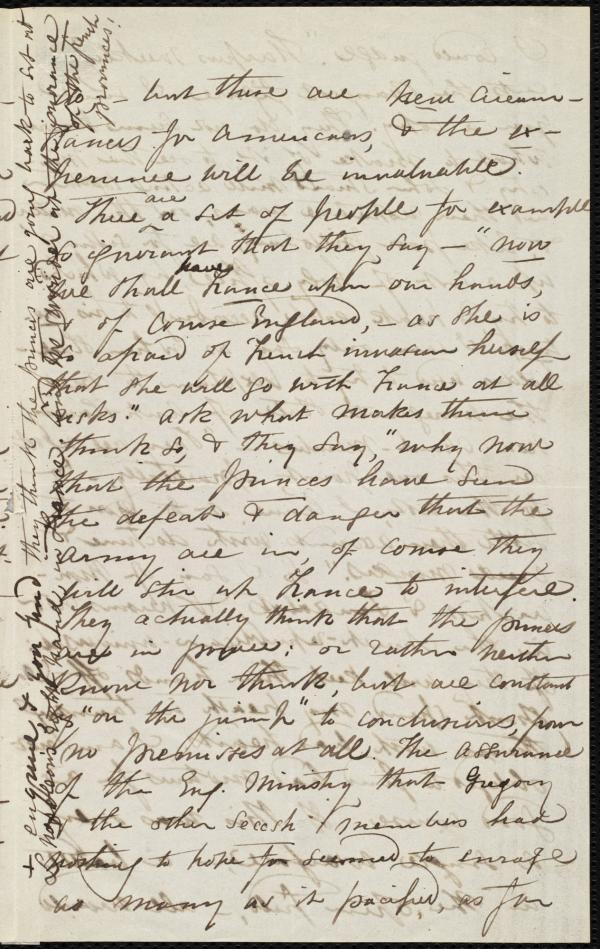 so — but these are new circum-
tances for Americans, & the ex-
perience will be invaluable.
There are a set of people for example
so ignorant that they say — "now
we shall have France upon our hands,
& of course England, — as she is
so afraid of French invasion herself
that she will go with France at all
risks." ask what makes them
think so, & they say, "why now
that the princes have seen
the defeat & danger that the
army are in, of course they
will stir up France to interfere.
They actually think that the princes
are in power; or rather neither
know nor think, but are content
to "on the jump" to conclusions, from
no premises at all. The assurance
of the Eng. Ministry that Gregory
& the other secesh members had
nothing to hope for seemed to enrage
as many as it pacified, as for
+ inquire, & you find they think the princes are going back to sit at
Napoleon's right hand in France,
ignorance
of the French
provinces!